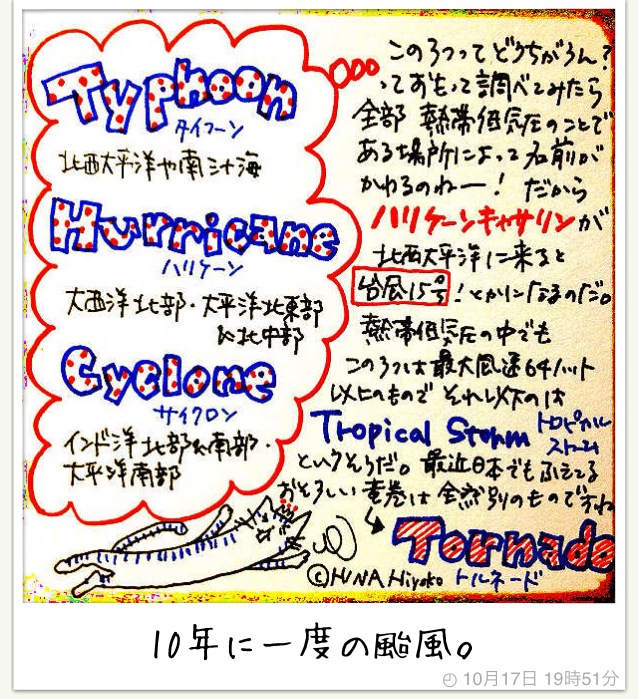 Typhoon
タイフーン
北西太平洋や南シナ海
Hurricane
ハリケーン
大西洋北部・太平洋北東部
&北中部
Cyclone
サイクロン
インド洋北部&南部・
太平洋南部
この3つってどうちがうん?
っておもって調べてみたら
全部 熱帯低気圧のことで
ある場所によって名前が
かわるのねー! だから
ハリケーンキャサリンが
北西太平洋に来ると
台風15号!とかになるのだ。
熱帯低気圧の中でも
この3つは最大風速64ノット
以上のもので それ以下のは
Tropical Storm トロピカル
ストーム
というそうだ。最近日本でもふえてる
おそろしい竜巻は全然別のものですね
Tornado
©HINA Hiyoko トルネード
10年に一度の颱風。
10月17日 19時51分